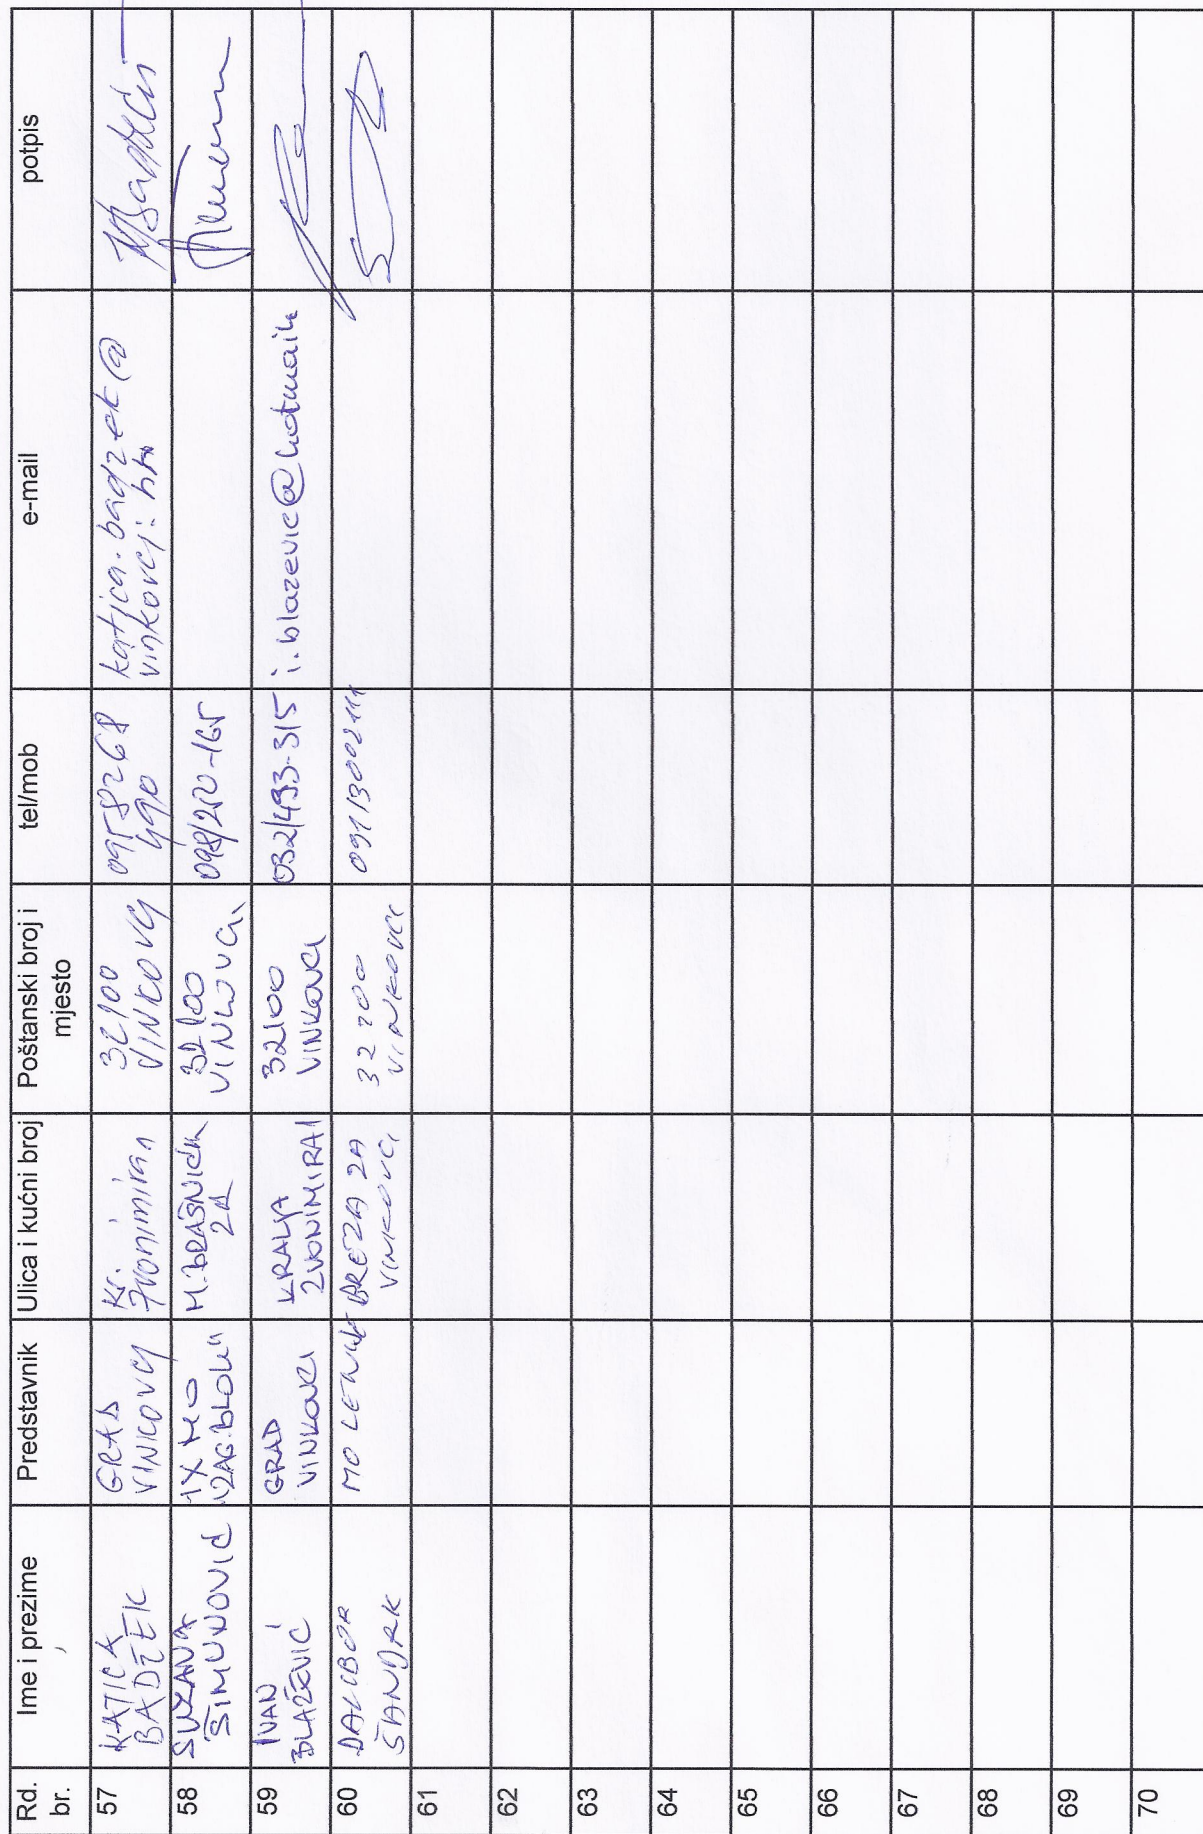 Rd. br.
Ime i prezime
Predstavnik
Ulica i kućni broj
Poštanski broj i mjesto
tel/mob
e-mail
potpis
57
KATICA
BADŽEK
GRAD
VINKOVCI
Kr.
Zvonimira 1
32100
VINKOVCI
0958268
490
katica.badzek@
vinkovci.hr
58
SUZANA
ŠIMUNOVIĆ
IX MO
"ZAG. BLOK"
2A
32100
VINKOVCI
59
IVAN
BLAŽEVIĆ
GRAD
VINKOVCI
KRALJA
ZVONIMIRA 1
32100
VINKOVCI
032/493-315
i.blazevic@hotmail
60
DALIBOR
ŠANDRK
MO
BREZA 2A
VINKOVCI
VINKOVCI
61
62
63
64
65
66
67
68
69
70